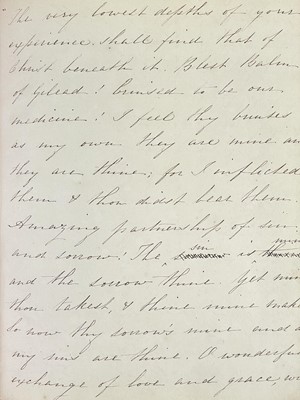 "The very lowest depths of your
experience shall find that of
Christ beneath it. Blest Balm
of Gilead! bruised to be our
medicine! I feel thy bruises
as my own. they are mine an
they are thine; for I inflicted
them & thou didst bear them.
Amazing partnership of sin
and sorrow! The sin is mine
and the sorrow thine. Yet min
thou takest, & thine mine make
So now thy sorrow's mine and a
my sins are thine. O wonderfu
exchange of love and grace, wo